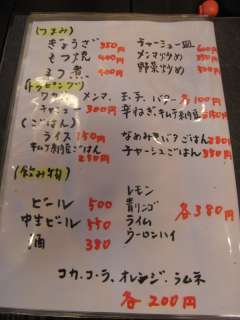 (つまみ)
ぎょうざ 350円 チャーシュー皿 600円
もつ焼 400円 メンマ炒め
もつ煮 500円 野菜炒め 350円
(トッピング)
ワカメ、メンマ、玉子、バター 各100円
チャーシュー 300円 辛ねぎ、キムチ、納豆
(ごはん)
ライス 150円 なめみそバターごはん
キムチ納豆ごはん チャーシュごはん 350円
250円
(飲み物)
ビール 500 レモン
中生ビール 550 青リンゴ 各380円
酒 380 ライム
ウーロンハイ
コカ、コーラ、オレンジ、ラムネ
各200円